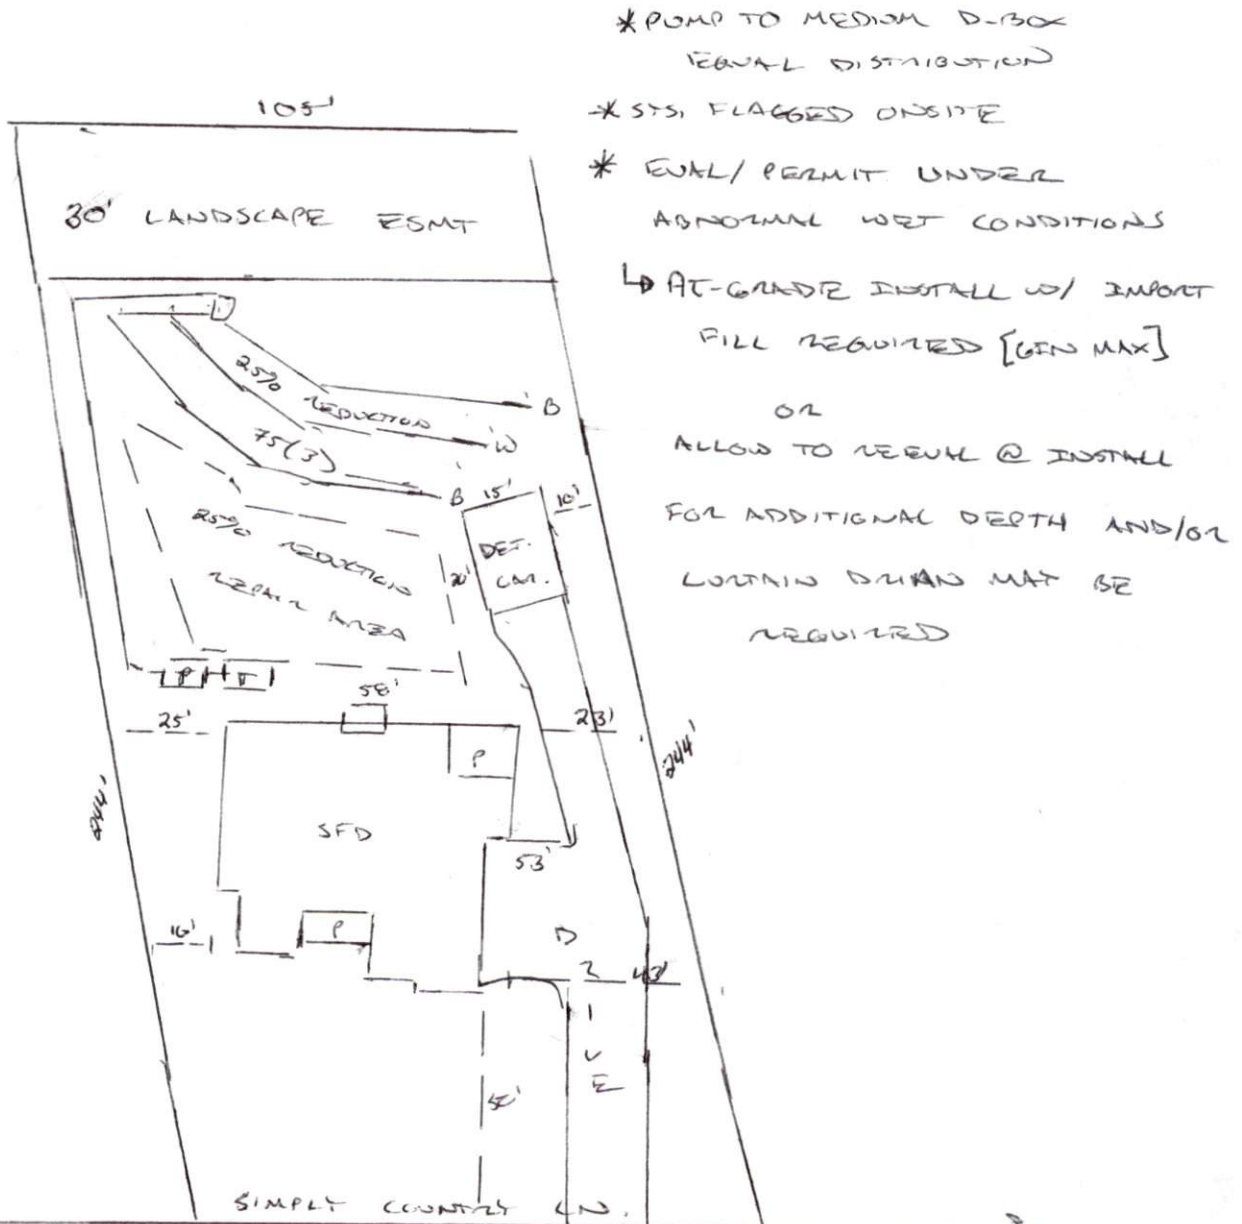 * PUMP TO MEDIUM D-BOX
EQUAL DISTRIBUTION
* SYS. FLAGGED ONSITE
* EVAL/PERMIT UNDER
ABNORMAL WET CONDITIONS
↳ AT-GRADE INSTALL W/ IMPORT
FILL REQUIRED [6IN MAX]
OR
ALLOW TO REEVAL @ INSTALL
FOR ADDITIONAL DEPTH AND/OR
CURTAIN DRIAN MAY BE
REQUIRED
105'
30' LANDSCAPE ESMT
25%
REDUCTION
75(3)
B
W
B
15'
10'
DET.
GAR.
20'
25% REDUCTION
REPAIR AREA
P T
58'
25'
23'
P
244'
244'
SFD
53'
16'
P
43'
DRIVE
SIMPLY COUNTRY LN.